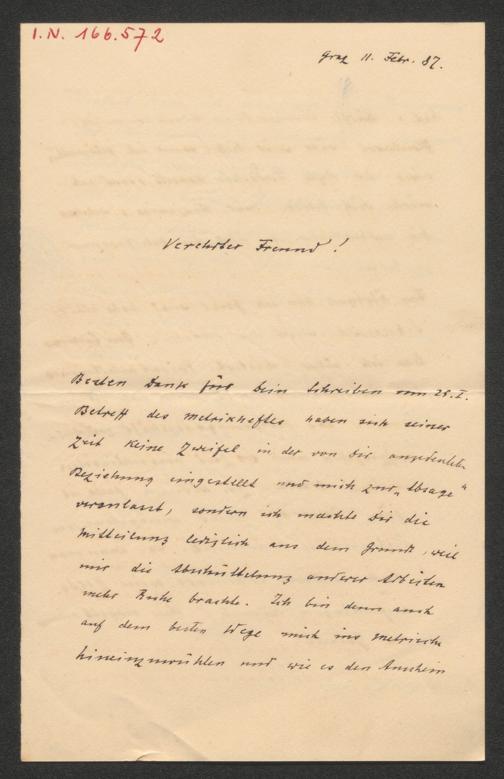 I.N. 166.572
Graz 11. Febr. 87.
Verehrter Freund!
Besten Dank für Dein Schreiben vom 29. I.
Betreff des Metrikheftes haben sich seiner
Zeit keine Zweifel in der von Dir angedeuteten
Beziehung eingestellt und mich zur „Absage"
veranlasst, sondern ich machte Dir die
Mitteilung lediglich aus dem Grunde, weil
mir die Abschüttelung anderer Arbeiten
mehr Ruhe brachte. Ich bin denn auch
auf dem besten Wege mich ins Metrische
hineinzuwühlen und wie es den Anschein